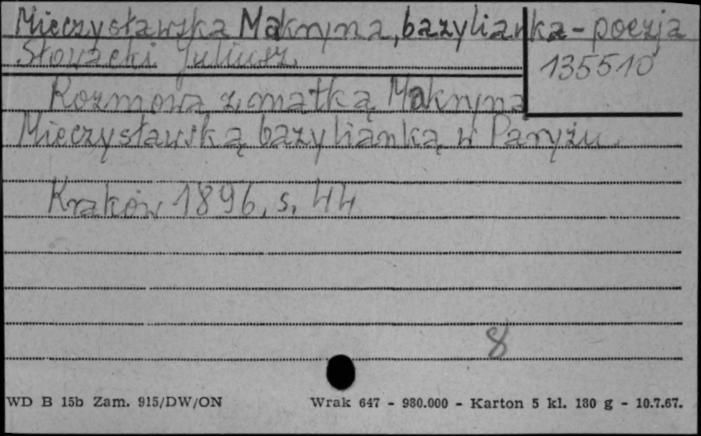 Mieczysławska Makryna, bazylianka - poezja
Słowacki Juliusz.
135510
Rozmowa z matką Makryną
Mieczysławską bazylianką w Paryżu.
Kraków 1896, s. 44
8
WD B 15b Zam. 915/DW/ON
Wrak 647 - 980.000 - Karton 5 kl. 180 g - 10.7.67.